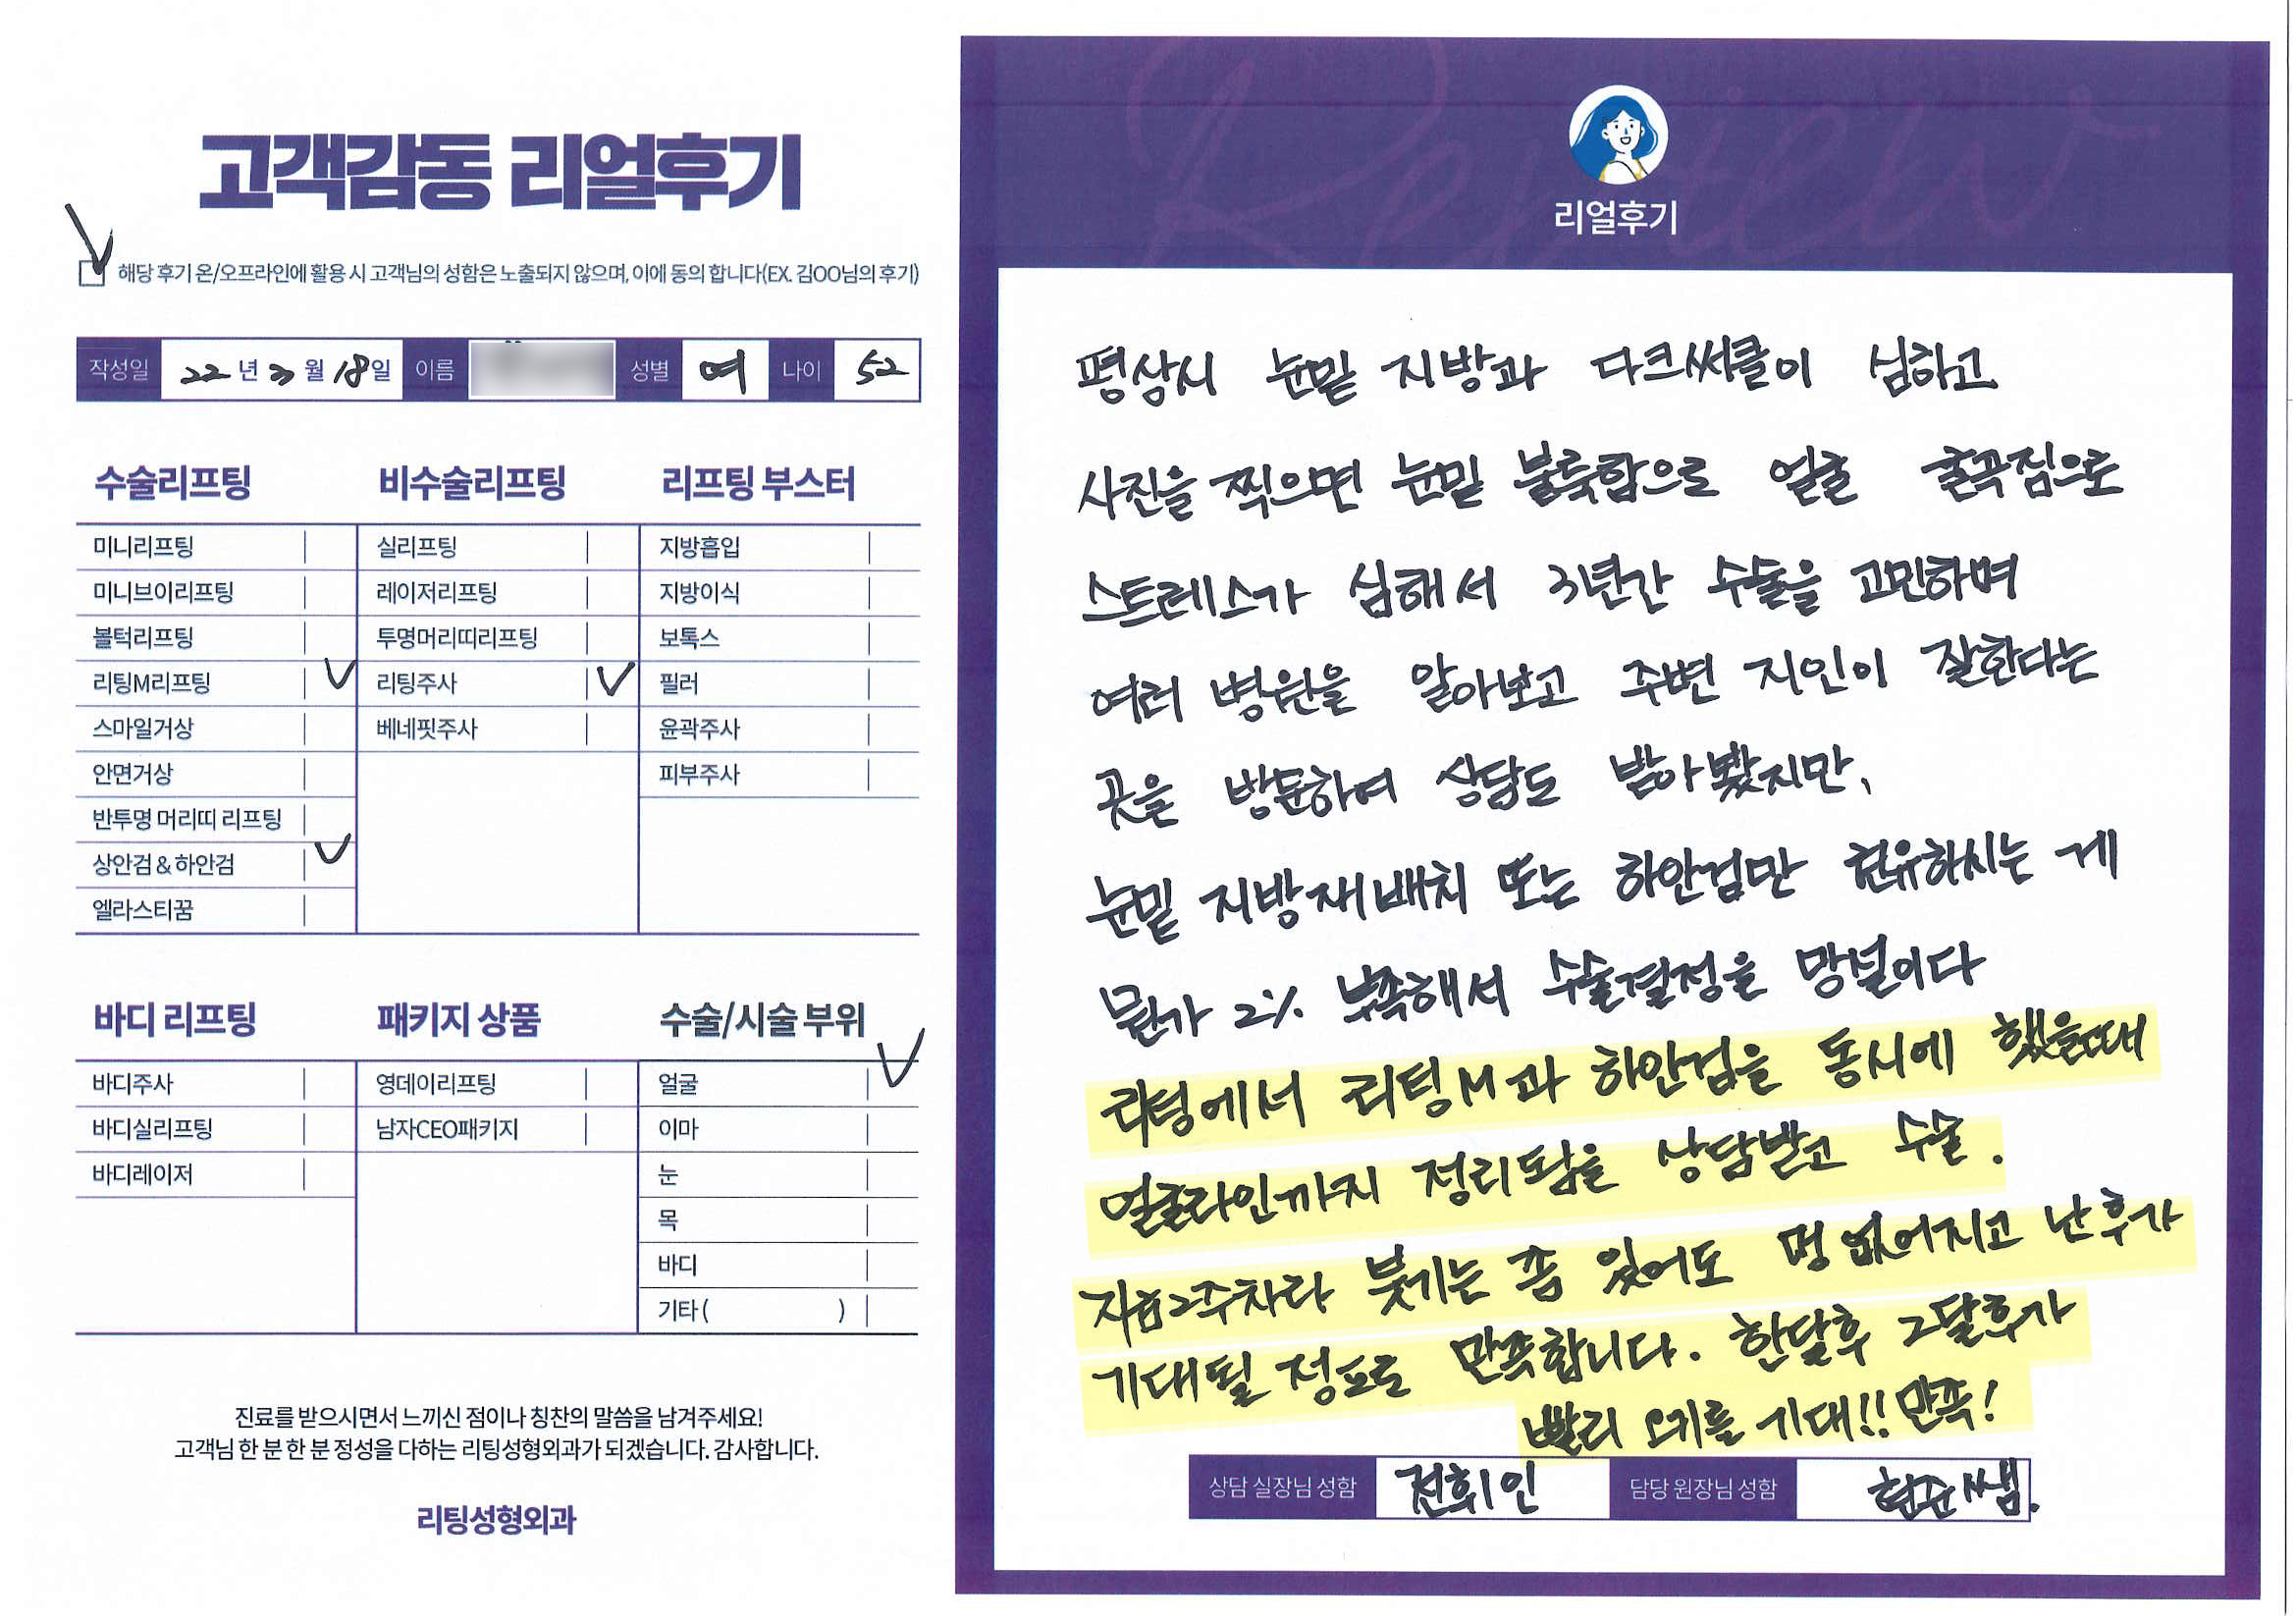 고객감동 리얼후기
해당 후기 온/오프라인에 활용 시 고객님의 성함은 노출되지 않으며, 이에 동의 합니다(EX. 김OO님의 후기)
작성일 22년 3월 18일 이름 성별 여 나이 52
수술리프팅
미니리프팅
미니브이리프팅
볼턱리프팅
리팅M리프팅
스마일거상
안면거상
반투명 머리띠 리프팅
상안검 & 하안검
엘라스티꿈
비수술리프팅
실리프팅
레이저리프팅
투명머리띠리프팅
리팅주사
베네핏주사
리프팅 부스터
지방흡입
지방이식
보톡스
필러
윤곽주사
피부주사
바디 리프팅
바디주사
바디실리프팅
바디레이저
패키지 상품
영데이리프팅
남자CEO패키지
수술/시술 부위
얼굴
이마
눈
목
바디
기타 ( )
진료를 받으시면서 느끼신 점이나 칭찬의 말씀을 남겨주세요!
고객님 한 분 한 분 정성을 다하는 리팅성형외과가 되겠습니다. 감사합니다.
리팅성형외과
Review
리얼후기
평상시 눈밑 지방과 다크써클이 심하고
사진을 찍으면 눈밑 불룩함으로 얼굴 굴곡짐으로
스트레스가 심해서 3년간 수술을 고민하며
여러 병원을 알아보고 주변 지인이 잘한다는
곳을 방문하여 상담도 받아봤지만,
눈밑 지방재배치 또는 하안검만 권유하시는 게
뭔가 2% 부족해서 수술결정을 망설이다
리팅에서 리팅M과 하안검을 동시에 했을때
얼굴라인까지 정리됨을 상담받고 수술.
지금2주차라 붓기는 좀 있어도 멍 없어지고 난 후가
기대될 정도로 만족합니다. 한달후 2달후가
빨리 오기를 기대!! 만족!
상담 실장님 성함 전휘인 담당 원장님 성함 현준쌤.